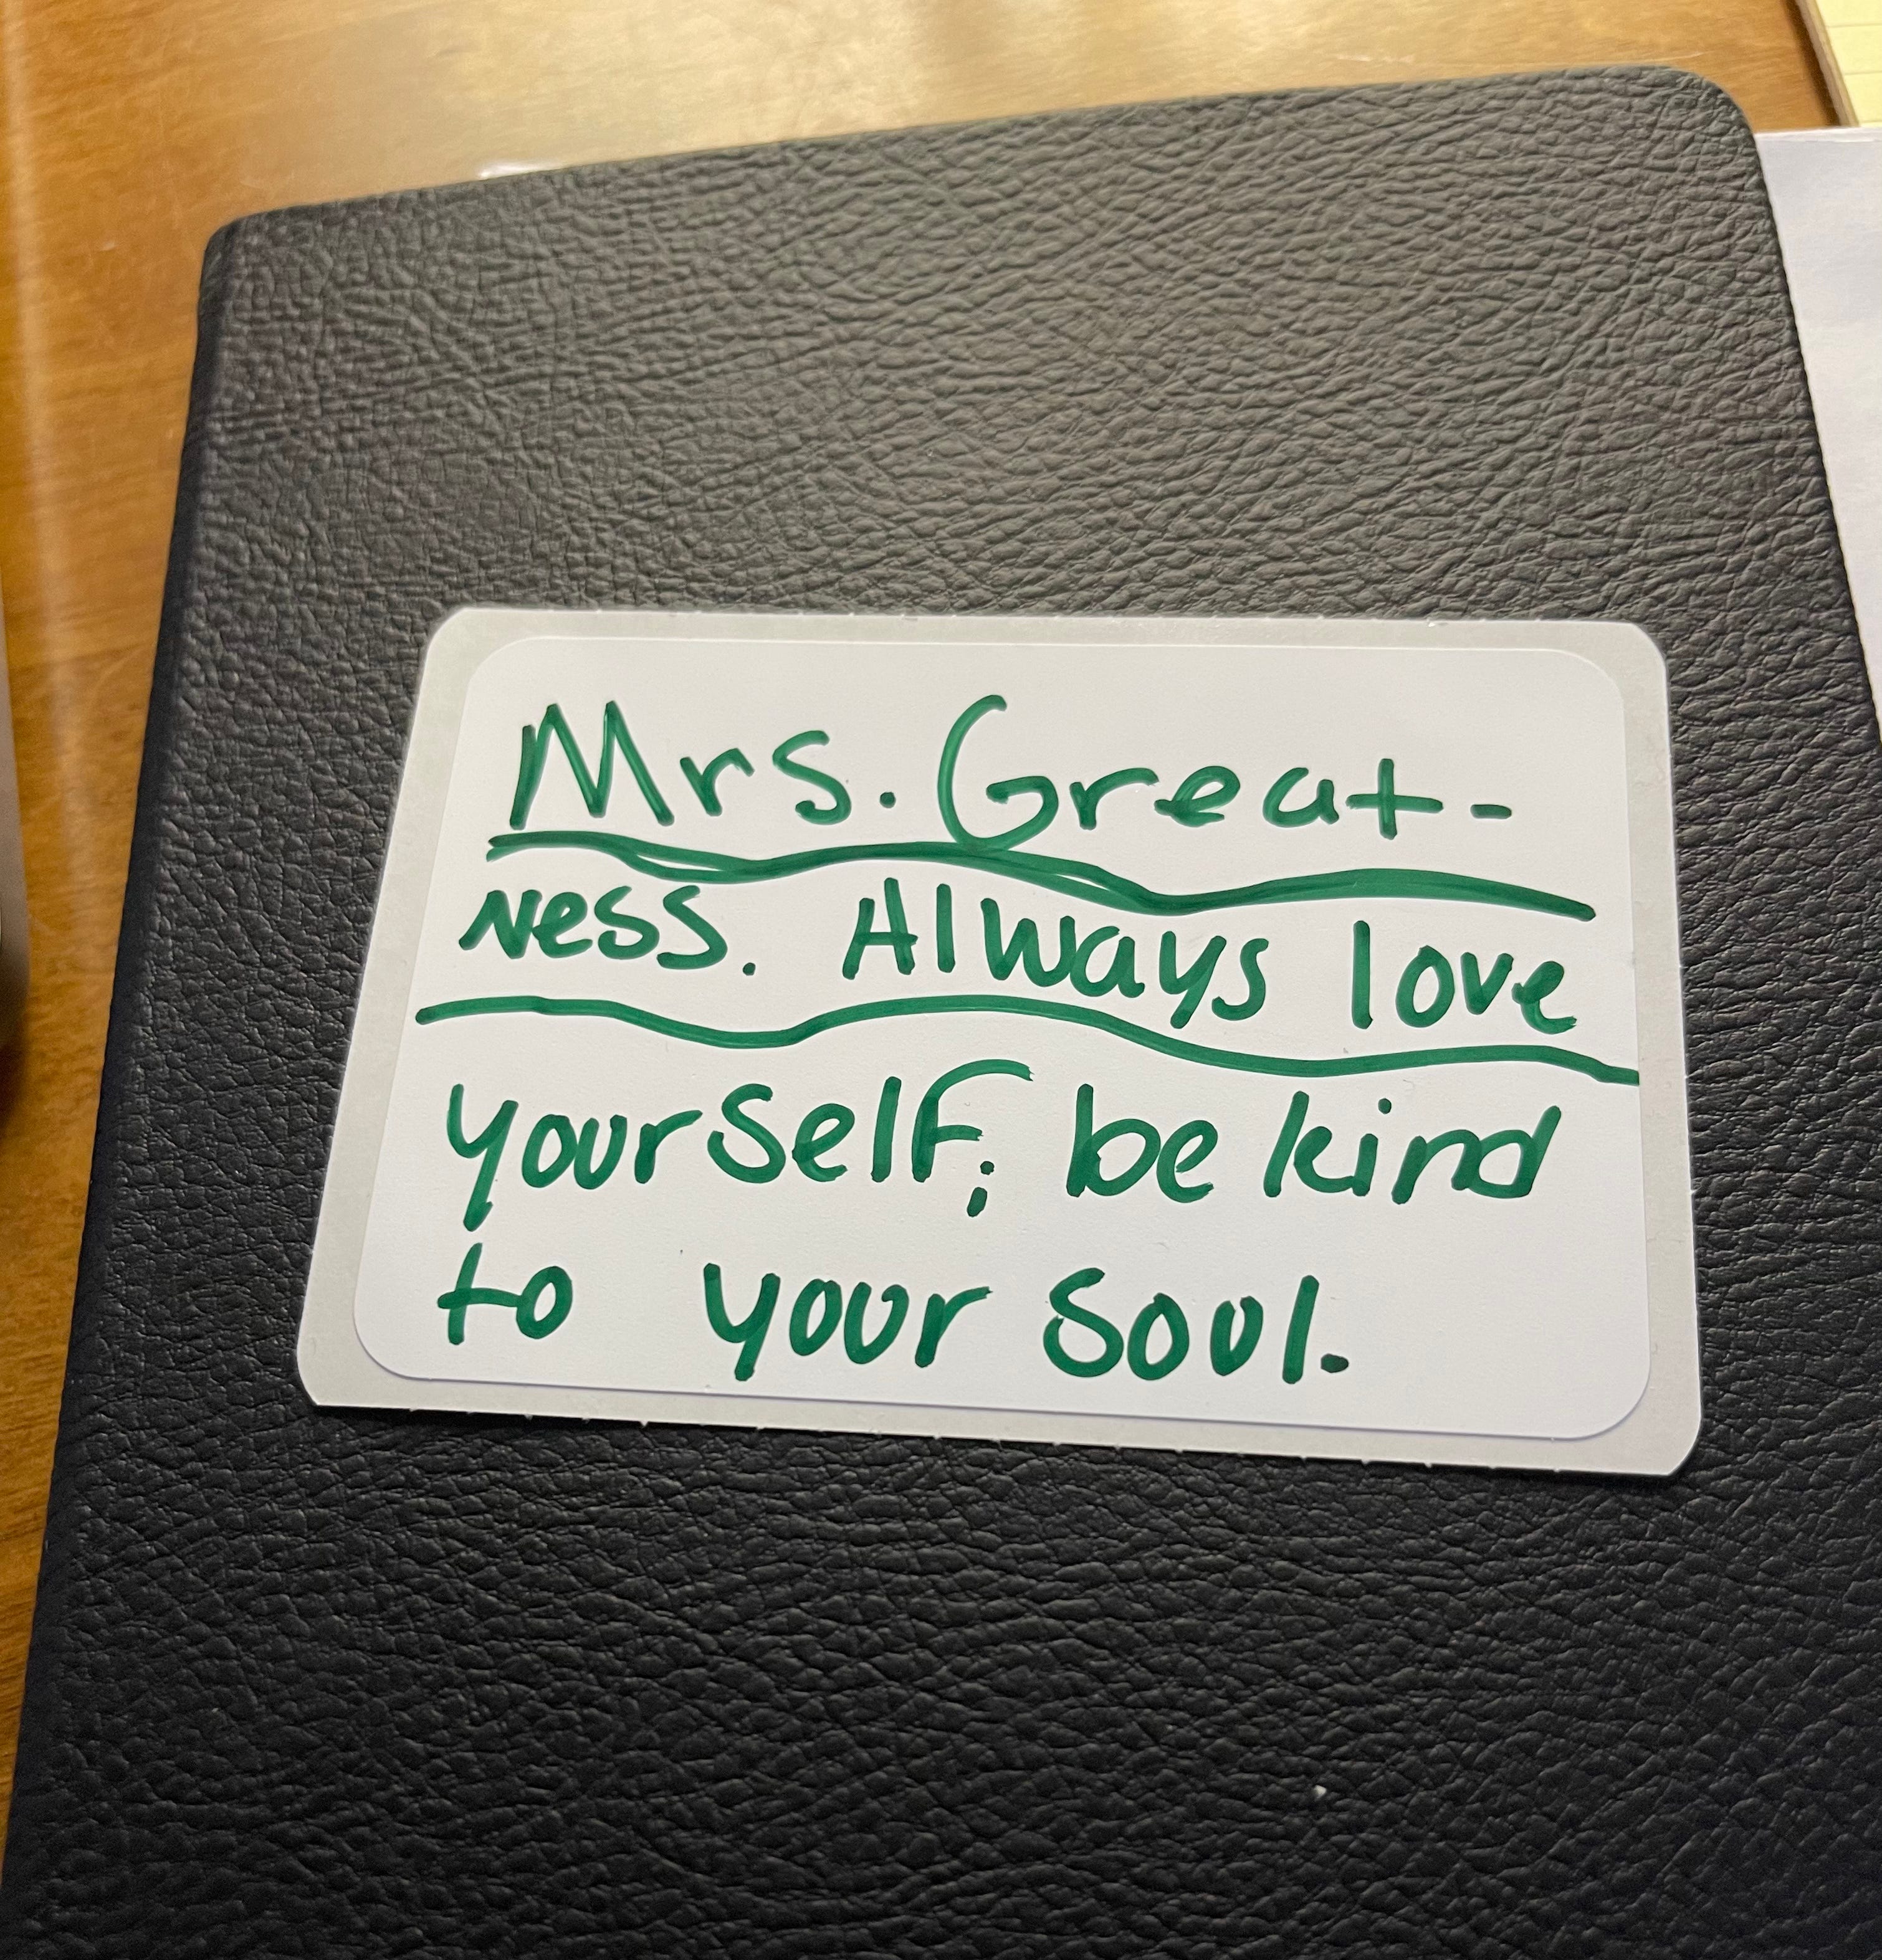 Mrs. Great-
ness. Always love
yourself; be kind
to your soul.